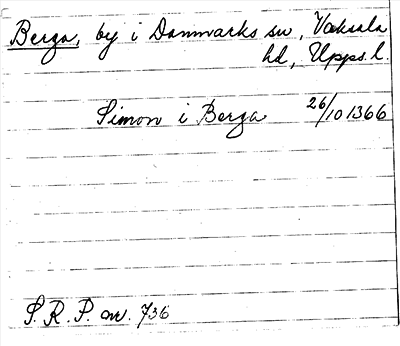 Berga, by i Danmarks sn, Vaksala
hd, Upps. l.
Simon i Berga 26/10 1366
S. R. P. nr. 736